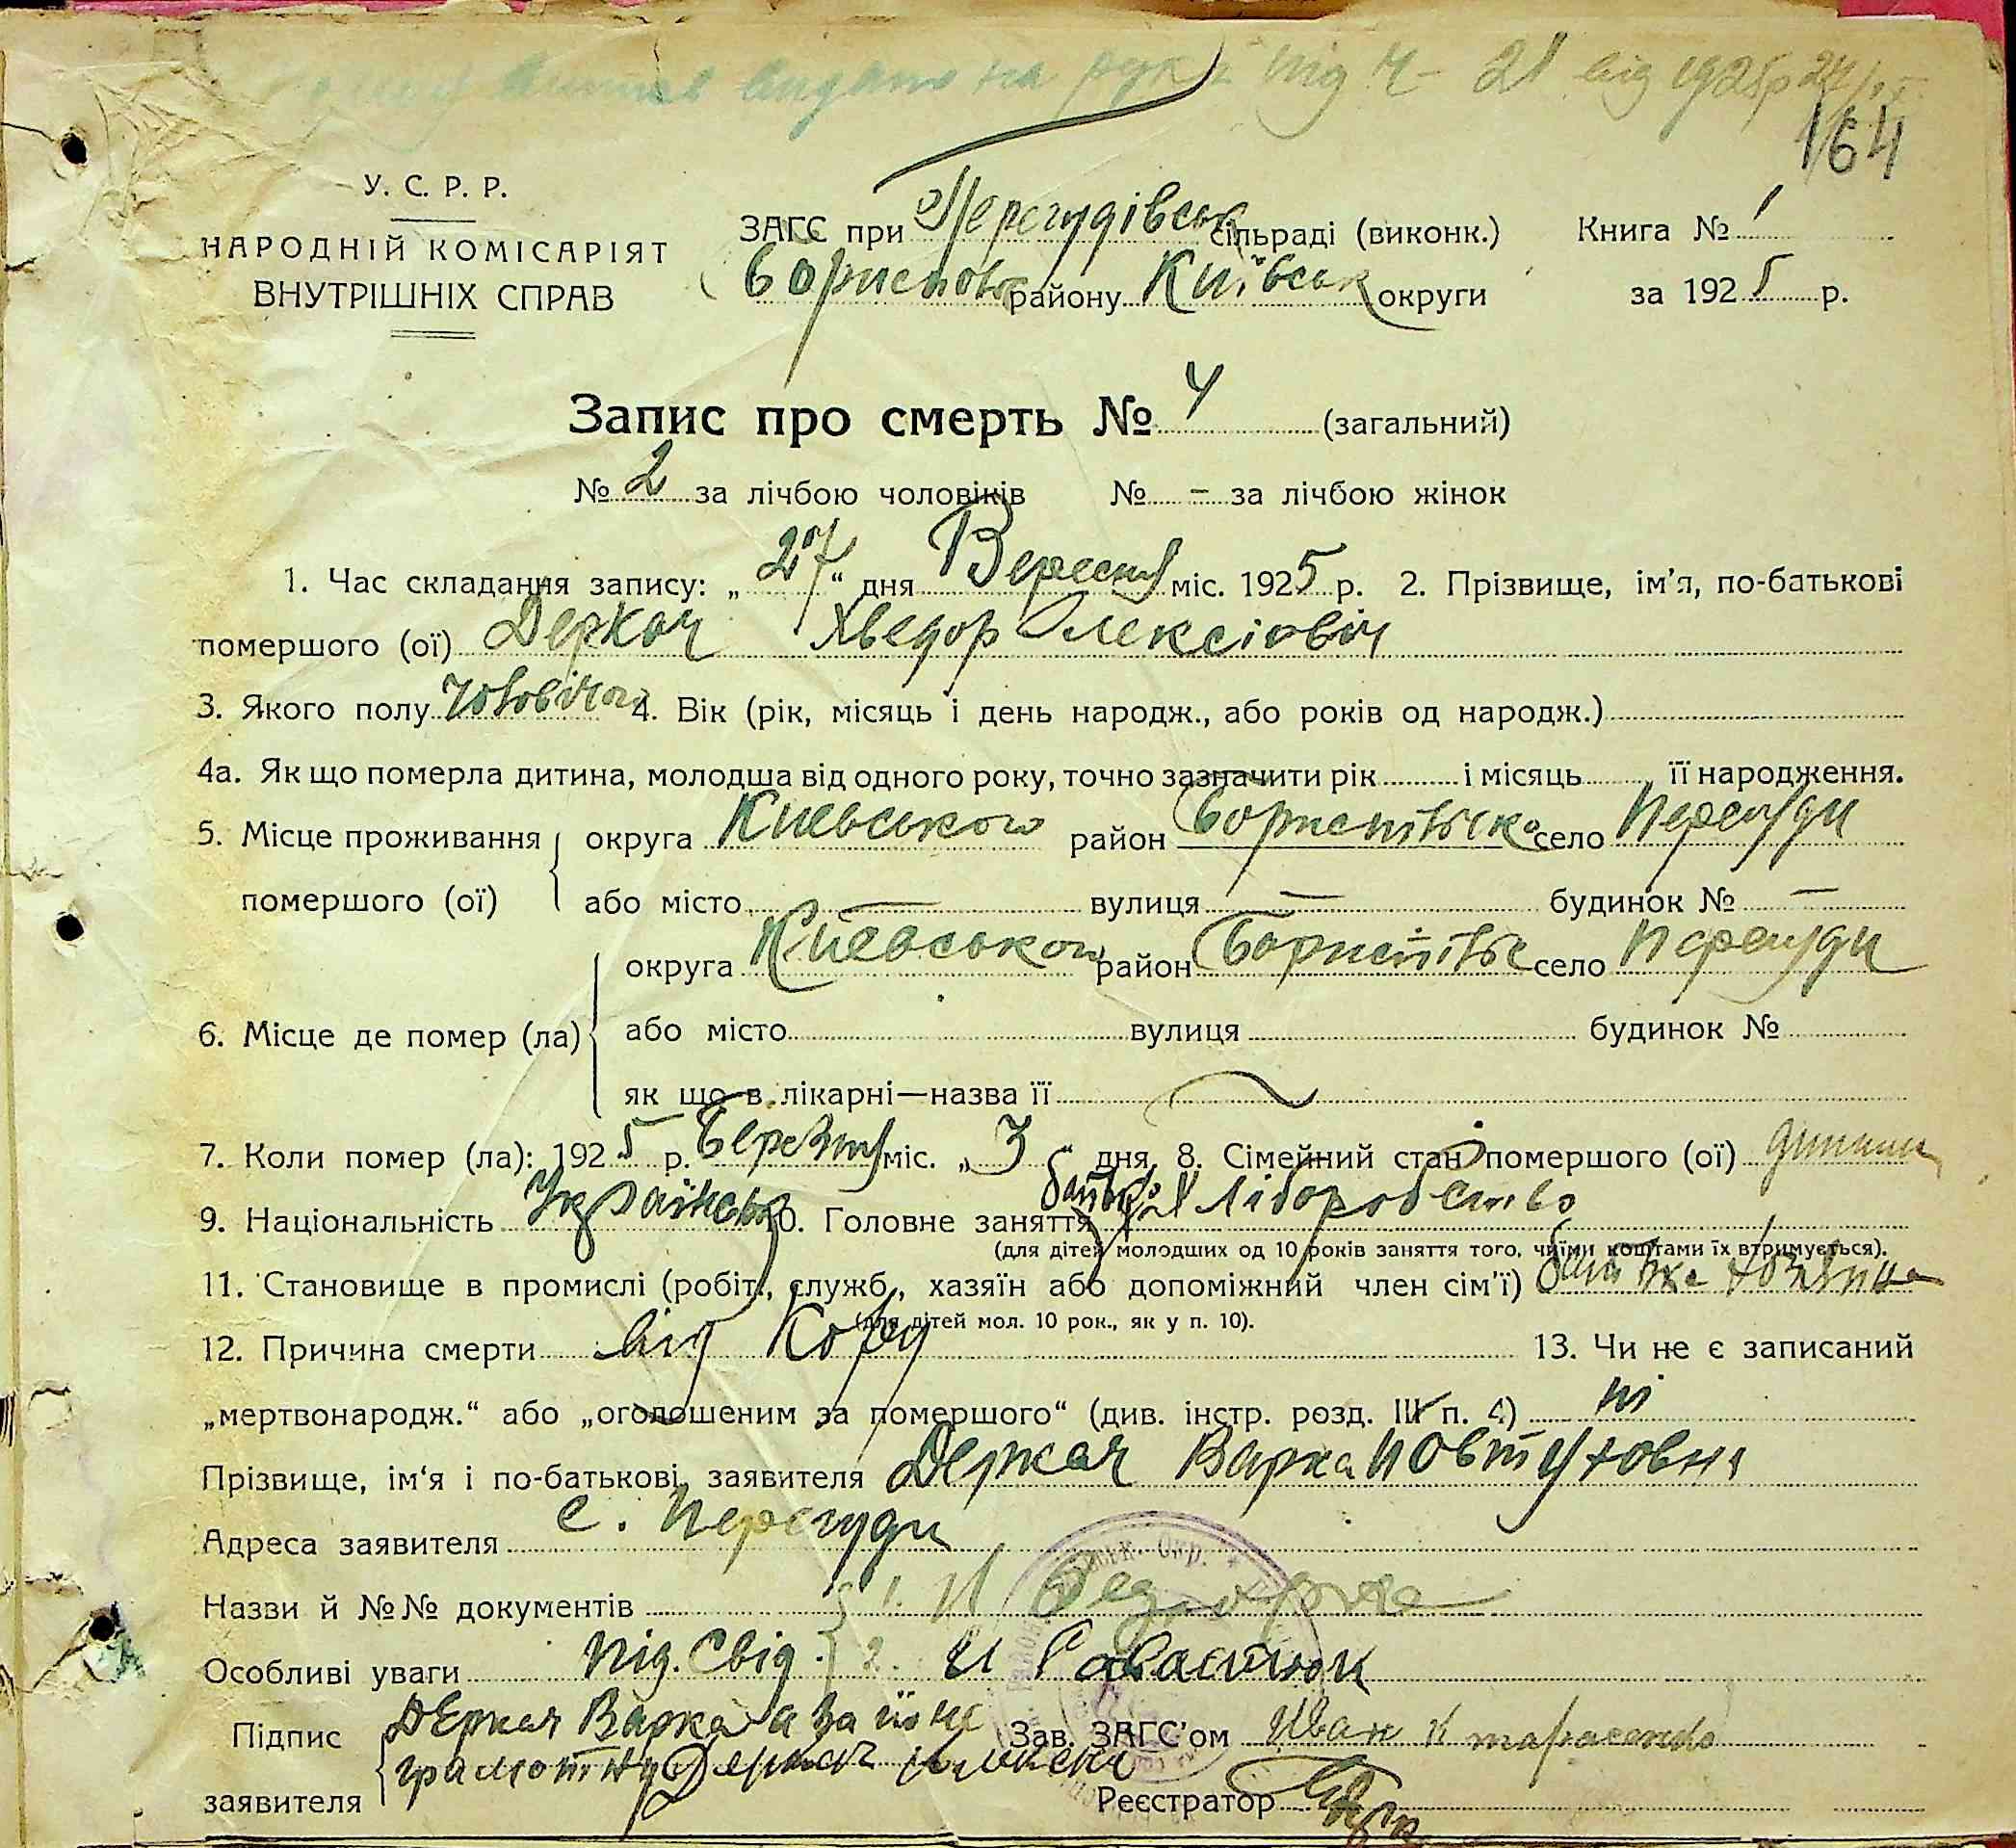 видано на рук під Ч- 21 від 1925р 24/
164
У. С. Р. Р.
НАРОДНІЙ КОМІСАРІЯТ
ВНУТРІШНІХ СПРАВ
ЗАГС при Перегудівськ сільраді (виконк.) Книга № 1
району Київськ округи за 1925 р.
Запис про смерть № 4 (загальний)
№ 2 за лічбою чоловіків № - за лічбою жінок
1. Час складання запису: „27“ дня Вересня міс. 1925 р. 2. Прізвище, ім'я, по-батькові
помершого (ої) Деркач Хведор Олексіовіч
3. Якого полу 4. Вік (рік, місяць і день народж., або років од народж.)
4а. Як що померла дитина, молодша від одного року, точно зазначити рік і місяць її народження.
5. Місце проживання округа Киевського район село Перегуди
помершого (ої) або місто — вулиця — будинок № —
округа Киевського район село Перегуди
6. Місце де помер (ла) або місто вулиця будинок №
як що в лікарні—назва її
7. Коли помер (ла): 1925 р. Березня міс. „3“ дня 8. Сімейний стан помершого (ої) дитина
9. Національність 10. Головне заняття батька хліборобство
(для дітей молодших од 10 років заняття того, чиїми коштами їх втримується).
11. Становище в промислі (робіт., служб., хазяїн або допоміжний член сім'ї) батька хазяїна
(для дітей мол. 10 рок., як у п. 10).
12. Причина смерти від Кору 13. Чи не є записаний
„мертвонародж.“ або „оголошеним за помершого“ (див. інстр. розд. III п. 4) ні
Прізвище, ім'я і по-батькові заявителя Деркач Варка Повтуховна
Адреса заявителя с. Перегуди
Назви й №№ документів 1.
Особливі уваги Під. Свід. 2.
Підпис Деркач Варка а за її не Зав. ЗАГС'ом Иван
заявителя грамотну Деркач Реєстратор